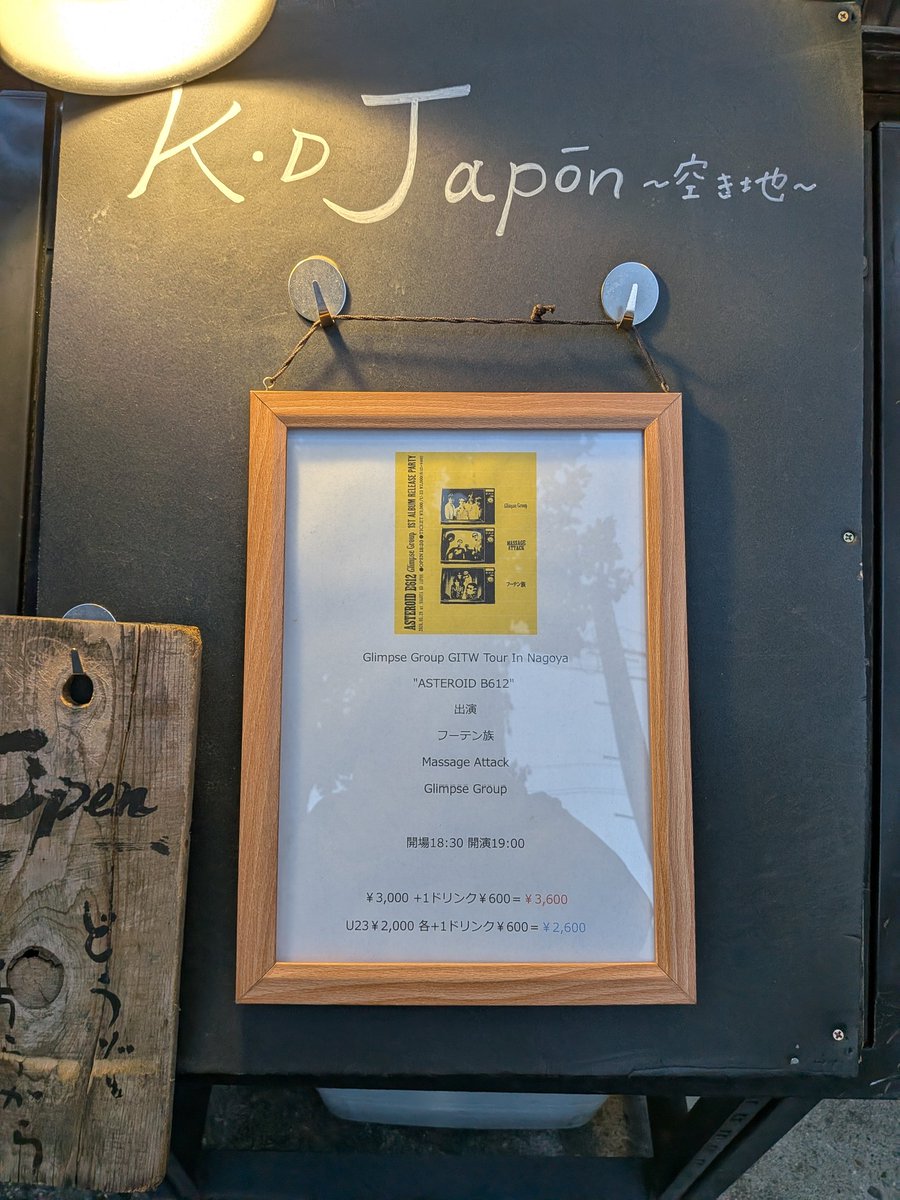 K·D Japōn ～空き地～
ASTEROID B612 Glimpse Group 1ST ALBUM RELEASE PARTY
Glimpse Group
MASSAGE ATTACK
フーテン族
Glimpse Group GITW Tour In Nagoya
"ASTEROID B612"
出演
フーテン族
Massage Attack
Glimpse Group
開場18:30 開演19:00
￥3,000 +1ドリンク￥600=￥3,600
U23￥2,000 各+1ドリンク￥600=￥2,600
Open
どうぞ